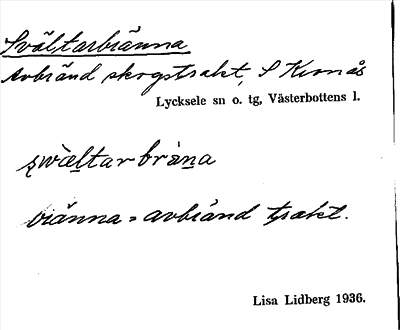 Svältarbränna
Avbränd skogstrakt, S Kirnås
Lycksele sn o. tg, Västerbottens l.
swæltarbrána
bränna = avbränd trakt.
Lisa Lidberg 1936.